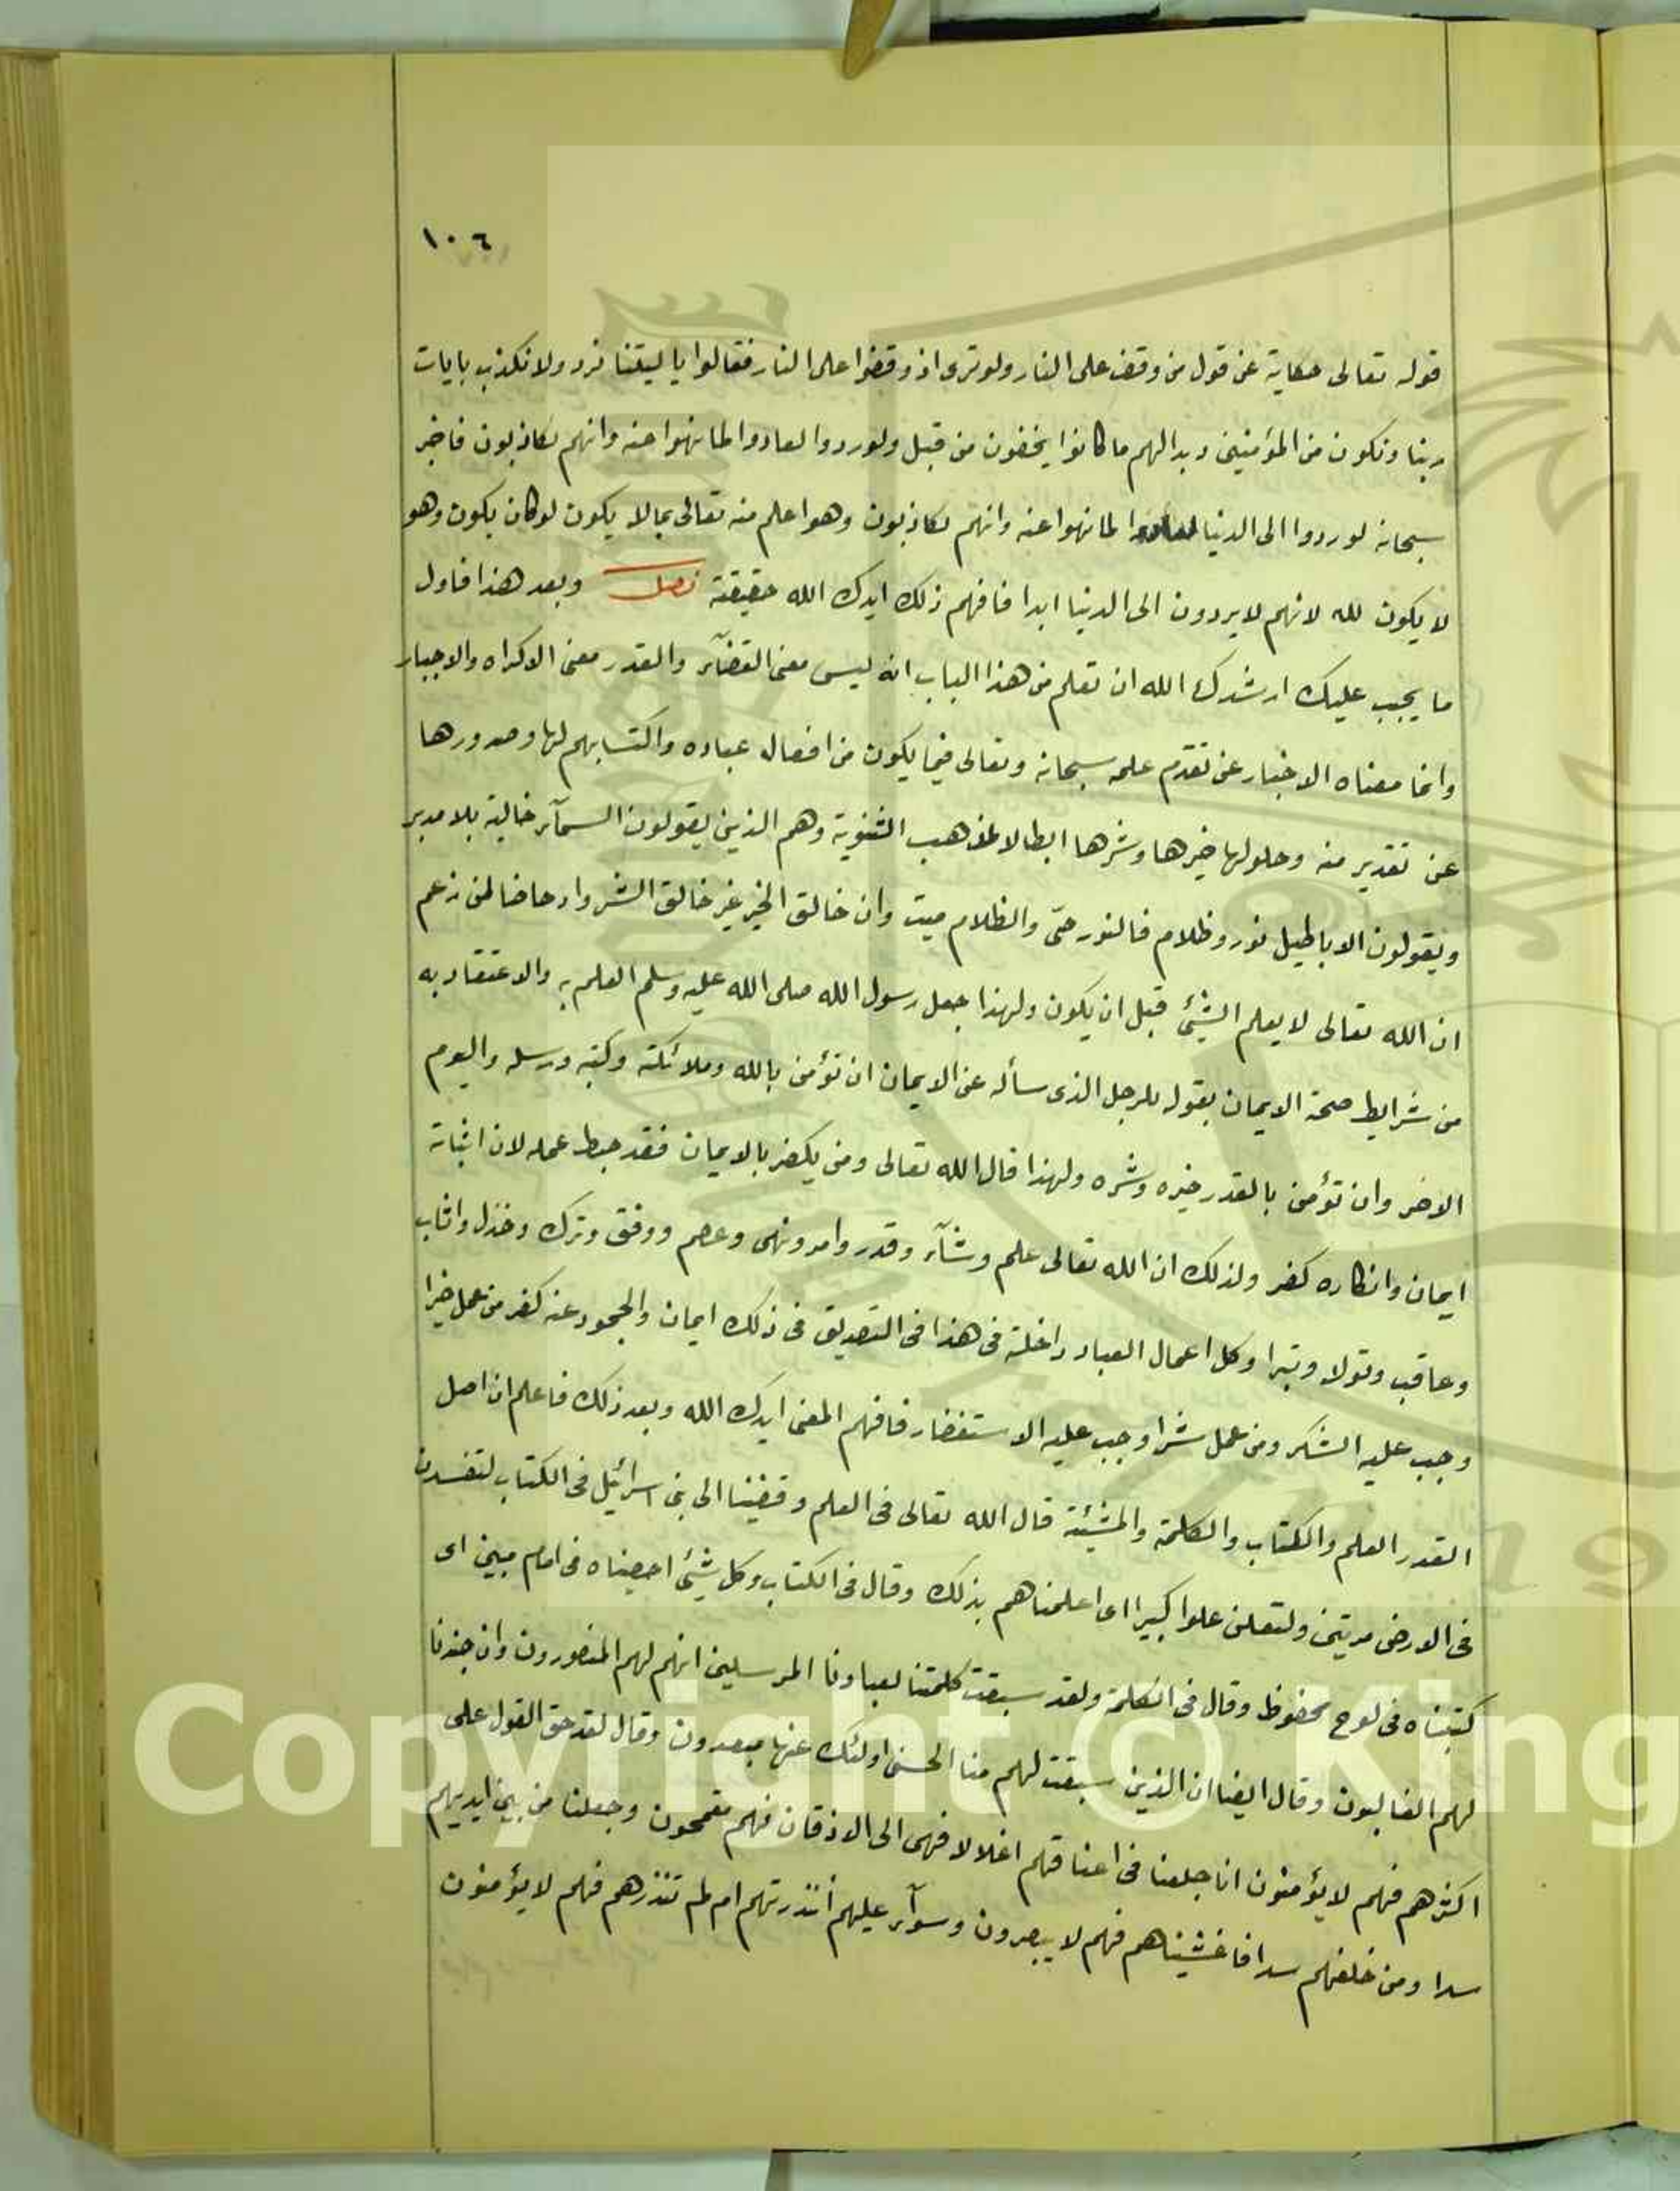 ١٠٦
قوله تعالى حكاية عن قول من وقف على النار ولو ترى اذ وقفوا على النار فقالوا يا ليتنا نرد ولا نكذب بايات
ربنا ونكون من المؤمنين وبدا لهم ما كانوا يخفون من قبل ولو ردوا لعادوا لما نهوا عنه وانهم لكاذبون فاخبر
سبحانه لو ردوا الى الدنيا لعادوا لما نهوا عنه وانهم لكاذبون وهو اعلم منه تعالى بما لا يكون لو كان يكون وهو
لا يكون لله لانهم لا يردون الى الدنيا ابدا فافهم ذلك ايدك الله حقيقته فصل وبعد هذا فاول
ما يجب عليك ارشدك الله ان تعلم من هذا الباب انه ليس معنى القضآء والقدر معنى الاكراه والاجبار
وانما معناه الاخبار عن تقدّم علمه سبحانه وتعالى فيما يكون من افعال عباده واكتسابهم لها وصدورها
عن تقدير منه وحلولها خيرها وشرها ابطالا لمذهب الثنوية وهم الذين يقولون السمآء خالية بلا مدبر
ويقولون الاباطيل نور وظلام فالنور حىّ والظلام ميت وان خالق الخير غير خالق الشر وادحاضا لمن زعم
ان الله تعالى لا يعلم الشيئ قبل ان يكون ولهذا جعل رسول الله صلى الله عليه وسلم العلم به والاعتقاد به
من شرايط صحة الايمان بقوله للرجل الذى سأله عن الايمان ان تؤمن بالله وملائكته وكتبه ورسله واليوم
الاخر وان تؤمن بالقدر خيره وشره ولهذا قال الله تعالى ومن يكفر بالايمان فقد حبط عمله لان اثباته
ايمان وانكاره كفر ولذلك ان الله تعالى علم وشآء وقدر وامر ونهى وعصم ووفق وترك وخذل واثاب
وعاقب وتولا وتبرا وكل اعمال العباد داخلة فى هذا فى التصديق فى ذلك ايمان والجحود عنه كفر من عمل خيرا
وجب عليه الشكر ومن عمل شرا وجب عليه الاستغفار فافهم المعنى ايدك الله وبعد ذلك فاعلم ان اصل
القدر العلم والكتاب والكلمة والمشيئة قال الله تعالى فى العلم وقضينا الى بنى اسرائيل فى الكتاب لتفسدن
فى الارض مرتين ولتعلن علوا كبيرا اى اعلمناهم بذلك وقال فى الكتاب وكل شيئ احصيناه فى امام مبين اى
كتبناه فى لوح محفوظ وقال فى الكلمة ولقد سبقت كلمتنا لعبادنا المرسلين انهم لهم المنصورون وان جندنا
لهم الغالبون وقال ايضا ان الذين سبقت لهم منا الحسنى اولئك عنها مبعدون وقال لقد حق القول على
اكثرهم فهم لا يؤمنون انا جعلنا فى اعناقهم اغلالا فهى الى الاذقان فهم مقمحون وجعلنا من بين ايديهم
سدا ومن خلفهم سدا فاغشيناهم فهم لا يبصرون وسوآء عليهم أنذرتهم ام لم تنذرهم فهم لا يؤمنون
Copyright © King